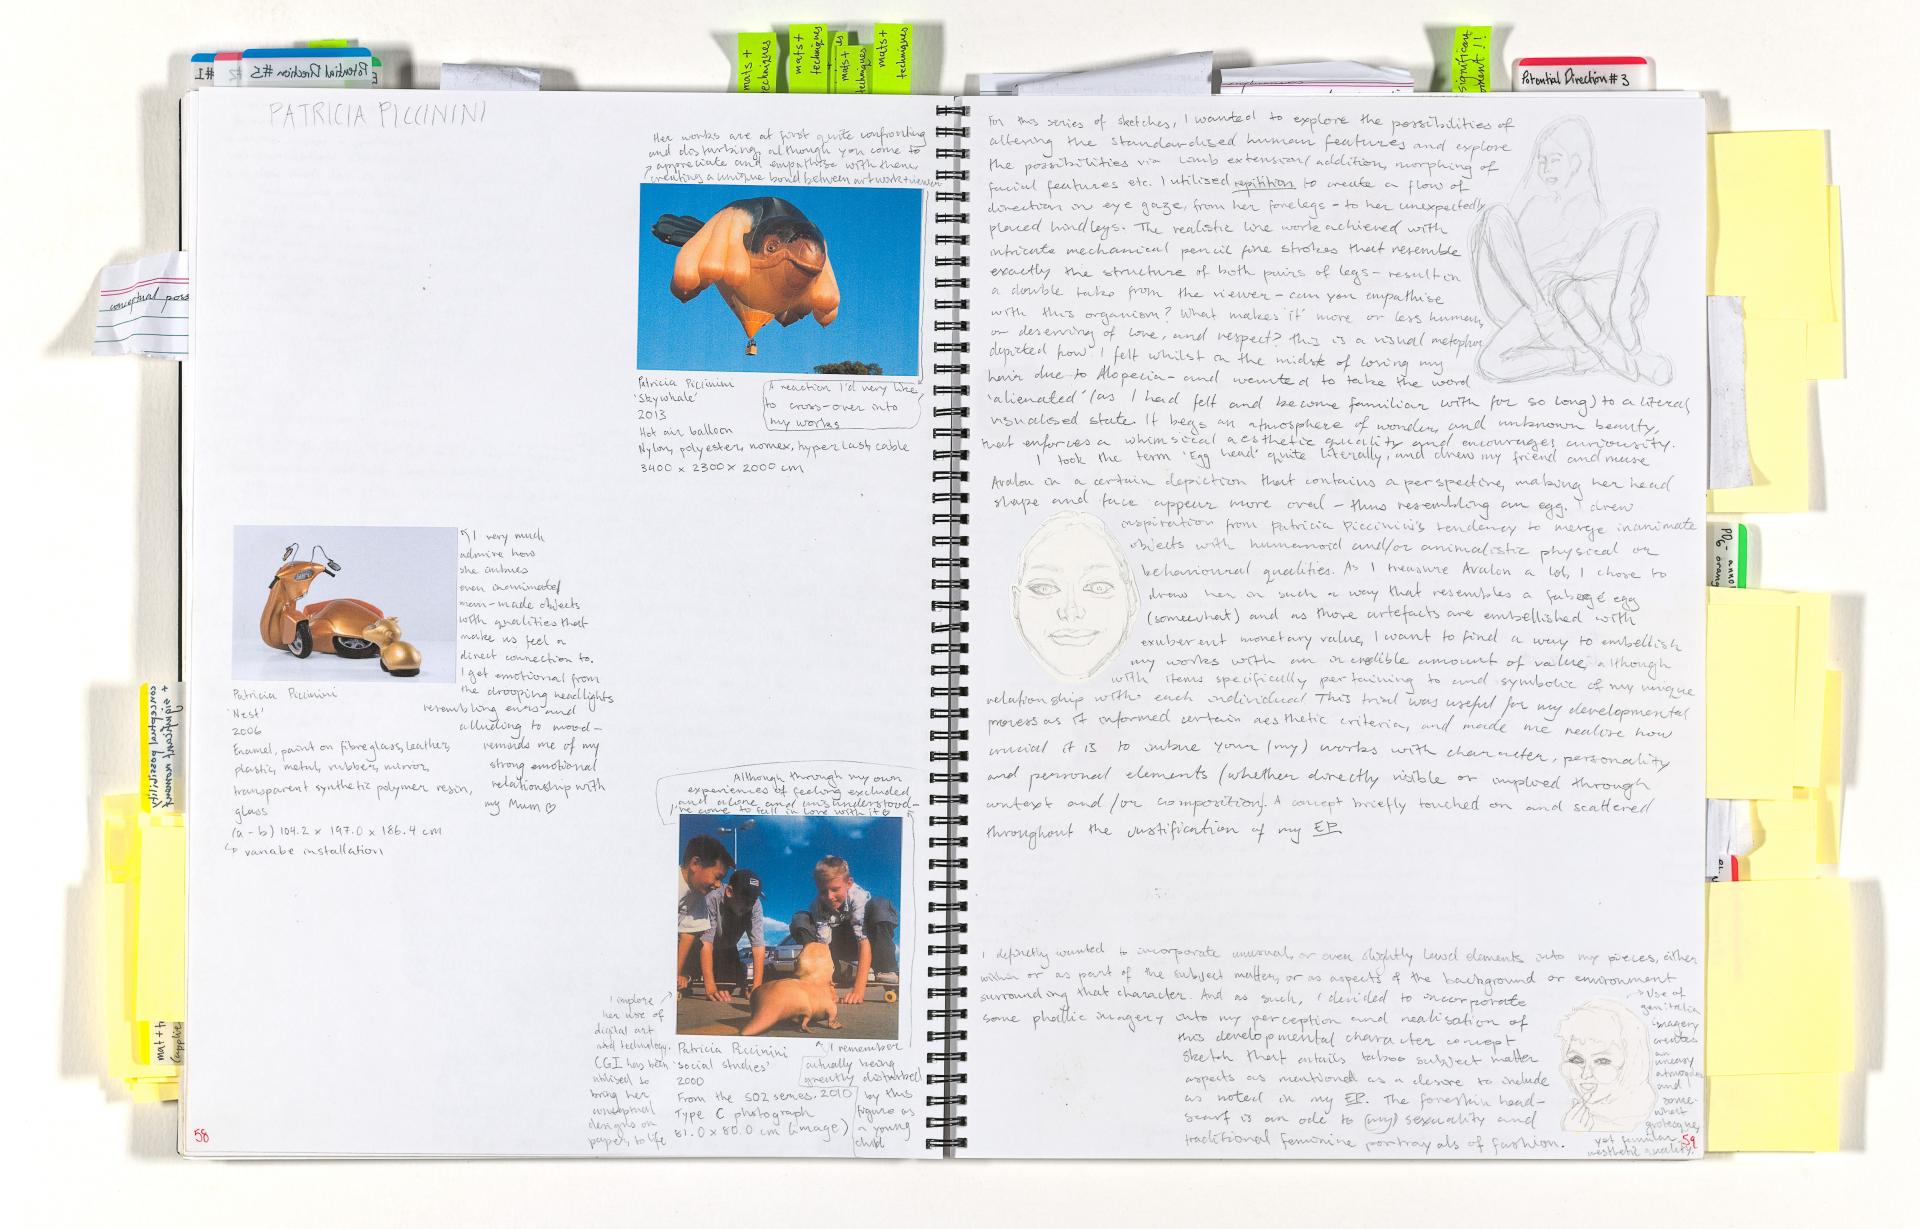 Potential Direction #3
mats + techniques
mats + techniques
mats + techniques
mats + techniques
significant moment!!
Potential Direction #3
conceptual poss
+ significant moment
conceptual possibility
PATRICIA PICCININI
Her works are at first quite confronting
and disturbing, although you come to
appreciate and empathise with them,
creating a unique bond between artwork+viewer
Patricia Piccinini
'Skywhale'
2013
Hot air balloon
Nylon, polyester, nomex, hyper last cable
3400 x 2300 x 2000 cm
A reaction I'd very like
to cross-over into
my works
I very much
admire how
she imbues
even inanimated
man-made objects
with qualities that
make us feel a
direct connection to.
I get emotional from
the drooping headlights
resembling ears and
alluding to mood-
reminds me of my
strong emotional
relationship with
my Mum ♡
Patricia Piccinini
'Nest'
2006
Enamel, paint on fibreglass, leather,
plastic, metal, rubber, mirror,
transparent synthetic polymer resin,
glass
(a-b) 104.2 x 197.0 x 186.4 cm
↳ variabe installation
Although through my own
experiences of feeling excluded
and alone and misunderstood-
I've come to fall in love with it ♡
I implore
her use of
digital art
and technology.
CGI has been
utilised to
bring her
conceptual
designs on
paper, to life
Patricia Piccinini
'social studies'
2000
From the SO2 series, 2010
Type C photograph
81.0 x 80.0 cm (image)
I remember
actually being
greatly disturbed
by this
figure as
a young
child
58
For this series of sketches, I wanted to explore the possibilities of
altering the standardised human features and explore
the possibilities via limb extension/addition, morphing of
facial features etc. I utilised repitition to create a flow of
direction in eye gaze, from her forelegs - to her unexpectedly
placed hindlegs. The realistic line work achieved with
intricate mechanical pencil fine strokes that resemble
exactly the structure of both pairs of legs - result in
a double take from the viewer - can you empathise
with this organism? What makes 'it' more or less human,
or deserving of love, and respect? This is a visual metaphor
depicted how I felt whilst in the midst of losing my
hair due to Alopecia - and wanted to take the word
'alienated' (as I had felt and become familiar with for so long) to a literal,
visualised state. It begs an atmosphere of wonder, and unknown beauty,
that enforces a whimsical aesthetic quality and encourages curiousity.
I took the term 'Egg head' quite literally, and drew my friend and muse
Avalon in a certain depiction that contains a perspective, making her head
shape and face appear more oval - thus resembling an egg. I drew
inspiration from Patricia Piccinini's tendency to merge inanimate
objects with humanoid and/or animalistic physical or
behavioural qualities. As I treasure Avalon a lot, I chose to
draw her in such a way that resembles a fabergé egg
(somewhat) and as those artefacts are embellished with
exuberent monetary value, I want to find a way to embellish
my works with an incredible amount of value, although
with items specifically pertaining to and symbolic of my unique
relationship with each individual. This trial was useful for my developmental
process as it informed certain aesthetic criteria, and made me realise how
crucial it is to imbue your (my) works with character, personality
and personal elements (whether directly visible or implied through
context and/or composition). A concept briefly touched on and scattered
throughout the justification of my EP.
I definetly wanted to incorporate unusual, or even slightly lewd elements into my pieces, either
within or as part of the subject matter, or as aspects of the background or environment
surrounding that character. And as such, I decided to incorporate
some phallic imagery into my perception and realisation of
this developmental character concept
sketch that entails taboo subject matter
aspects as mentioned as a desire to include
as noted in my EP. The foreskin head-
scarf is an ode to (my) sexuality and
traditional feminine portrayals of fashion.
Use of
genitalia
imagery
creates
an
uneasy
atmosphere
and
some-
what
grotesque,
yet familiar
aesthetic quality.
59